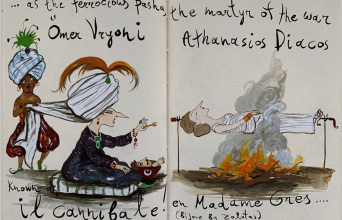 ... as the ferocious Pasha
Ömer Vryoni
Known as
il Cannibale!
the martyr of the war
Athanasios Diacos
en Madame Grès ....
(Bijoux by Zolotas)